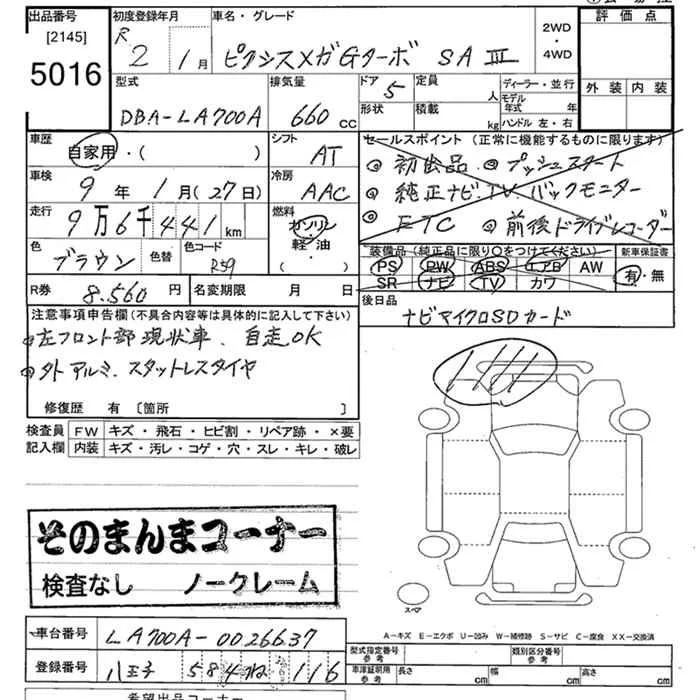 出品番号 初度登録年月 車名・グレード 評価点
[2145] R 2WD
5016 2 1月 ピクシスメガGターボ SAⅢ ・4WD
型式 排気量 ドア 定員 ディーラー・並行 外装 内装
5 人 モデル年式 年
DBA-LA700A 660 cc 形状 積載 kg ハンドル 左・右
車歴 シフト セールスポイント (正常に機能するものに限ります)
自家用・( ) AT 初出品 プッシュスタート
車検 冷房
9年1月(27日) AAC 純正ナビ.TV.バックモニター
走行 燃料
9万6千441km ガソリン ETC 前後ドライブレコーダー
色 色替 色コード 軽油・ 装備品(純正品に限り○をつけてください) 新車保証書
ブラウン R59 ( ) PS PW ABS エアB AW 有・無
SR ナビ TV カワ
R券 8.560円 名変期限 月 日 後日品
ナビマイクロSDカード
注意事項申告欄(不具合内容等は具体的に記入して下さい)
左フロント部現状車、自走OK
外アルミ、スタットレスタイヤ
修復歴 有 〔箇所 〕
検査員 FW キズ・飛石・ヒビ割・リペア跡・×要
記入欄 内装 キズ・汚レ・コゲ・穴・スレ・キレ・破レ
そのまんまコーナー
検査なし ノークレーム
スペア
A-キズ E-エクボ U-凹み W-補修跡 S-サビ C-腐食 XX-交換済
車台番号 LA700A-0026637 型式指定番号 参考 類別区分番号 参考
登録番号 八王子 584 116 車庫証明用 参考 長さ cm 幅 cm 高さ cm
希望出品コーナー